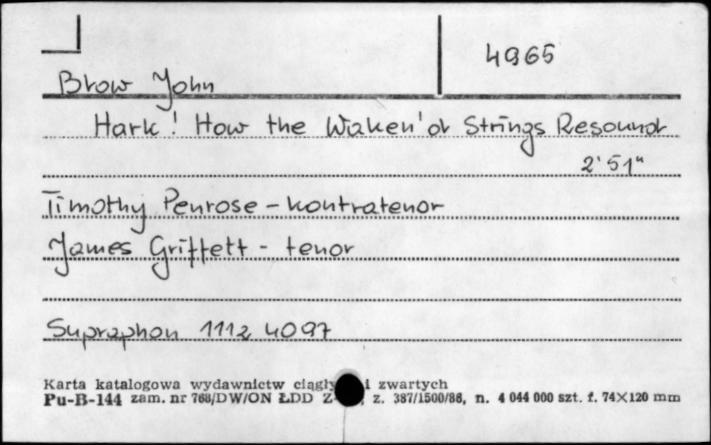 4965
Blow John
Hark! How the Waken'd Strings Resound
2'51"
Timothy Penrose - kontratenor
James Griffett - tenor
Supraphon 1112 4097
Karta katalogowa wydawnictw ciągły i zwartych
Pu-B-144 zam. nr 768/DW/ON ŁDD Z z. 387/1500/86, n. 4 044 000 szt. f. 74×120 mm